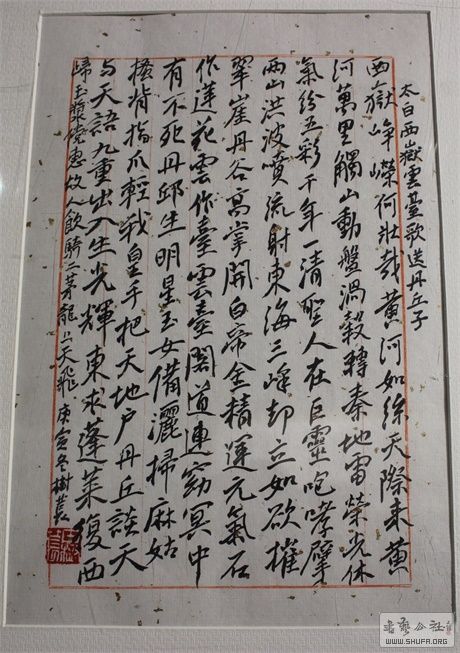 太白西嶽雲臺歌送丹丘子
西嶽崢嶸何壯哉黃河如絲天際來黃
河萬里觸山動盤渦轂轉秦地雷榮光休
氣紛五彩千年一清聖人在巨靈咆哮擘
兩山洪波噴流射東海三峰却立如欲摧
翠崖丹谷高掌開白帝金精運元氣石
作蓮花雲作臺雲臺閣道連窈冥中
有不死丹邱生明星玉女備灑掃麻姑
搔背指爪輕我皇手把天地户丹丘談天
与天語九重出入生光輝東求蓬萊復西
歸玉漿儻惠故人飲騎二茅龍上天飛 庚寅冬樹
書藝公社
WWW.SHUFA.ORG